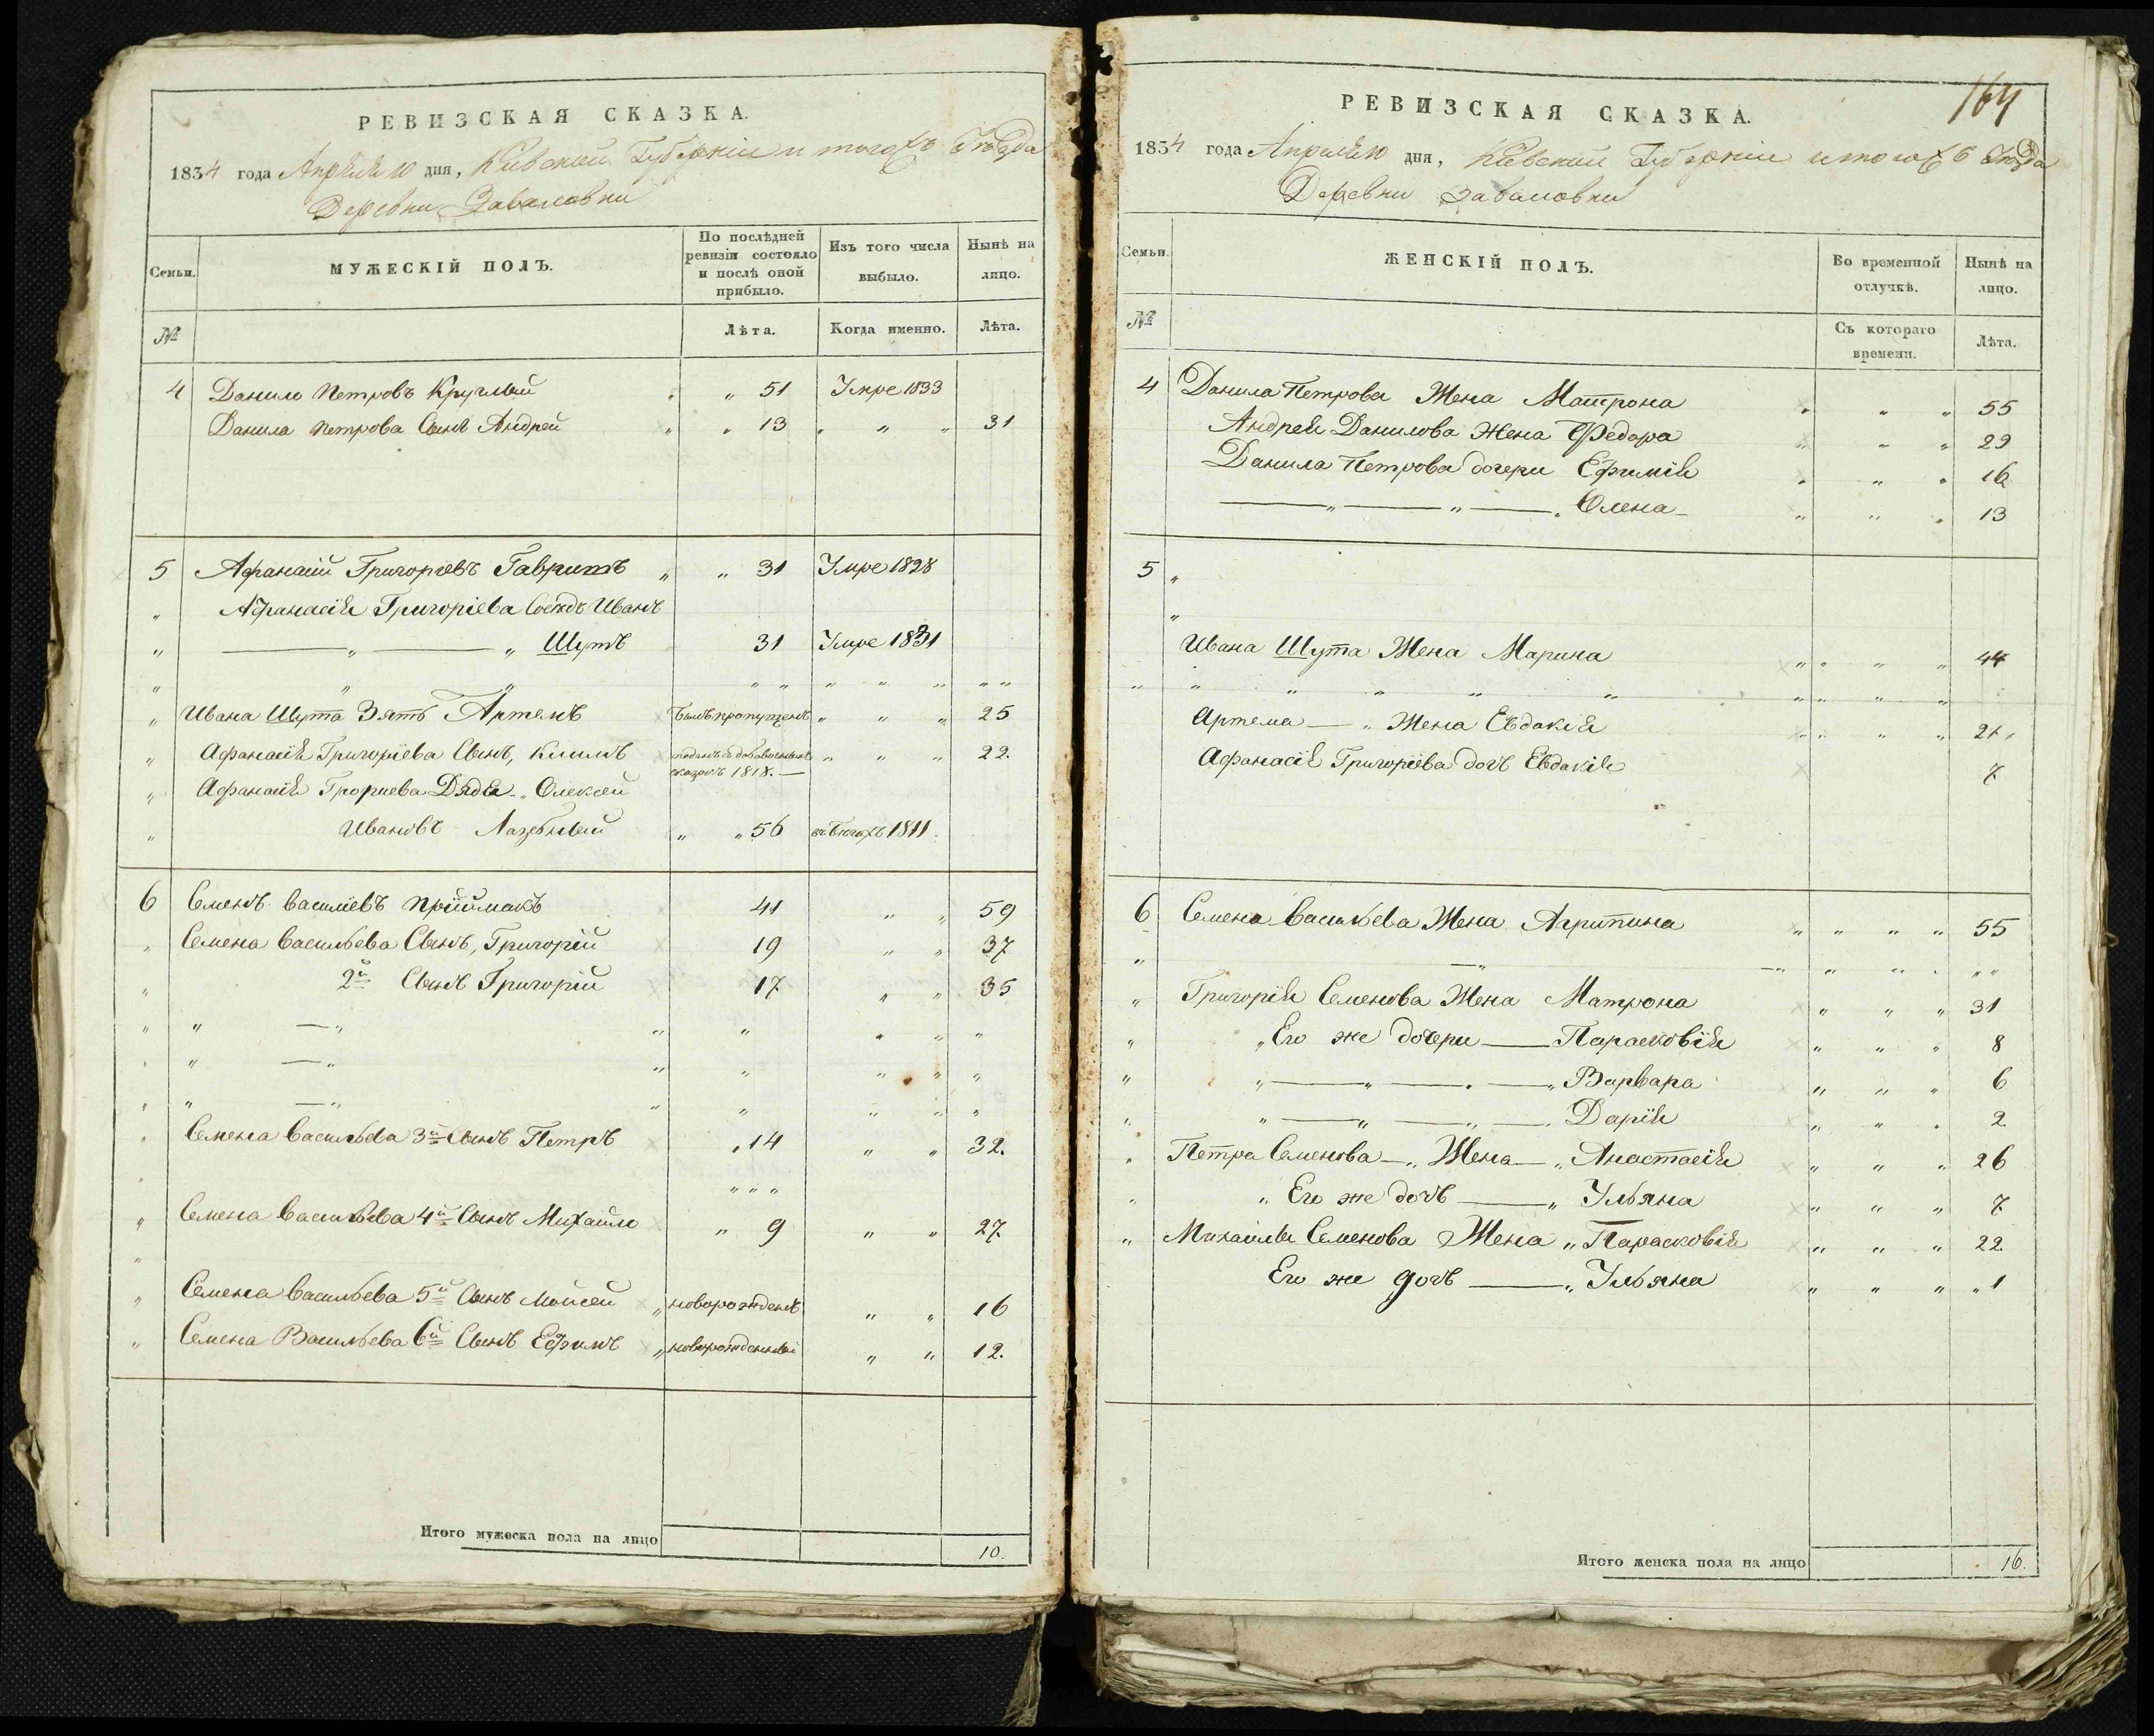 РЕВИЗСКАЯ СКАЗКА.
1834 года Апреля 10 дня, Киевской Губерніи и того жъ Уезда
Деревни Заваловки
Семьи.
МУЖЕСКІЙ ПОЛЪ.
По послѣдней ревизіи состояло и послѣ оной прибыло.
Изъ того числа выбыло.
Нынѣ на лицо.
№
Лѣта.
Когда именно.
Лѣта.
4 Данило Петровъ Круглый " 51 Умре 1833
Данила Петрова Сынъ Андрей " " 13 " " " 31
5 Афанасій Григорьевъ Гавришъ " " 31 Умре 1828
" Афанасія Григоріева Соседъ Иванъ
" — " — " Шутъ 31 Умре 1831
" " " " " " " " " "
" Ивана Шута Зять Артемъ былъ пропущенъ " " " 25
" Афанасія Григоріева Сынъ, Климъ поданъ в добавочныхъ сказкахъ 1818. — " " " 22.
" Афанасія Грориева Дядя " Олексей
" Ивановъ Лазебный " " 56 въ бегахъ 1811
6 Семенъ Василіевъ Пріймакъ 41 " " 59
" Семена Васильева Сынъ, Григорій 19 " " 37
" 2й Сынъ Григорій 17 " " 35
" " — " " " " " "
" " — " " " " " "
" " — " " " " " "
" Семена Васильева 3й Сынъ Петръ " 14 " " 32.
" " " "
" Семена Васильева 4й Сынъ Михайло " 9 " " 27
"
" Семена Васильева 5й Сынъ Мойсей " новорожденъ " " 16
" Семена Васильева 6й Сынъ Ефимъ " новорожденный " " 12.
Итого мужеска пола на лицо 10.
164
РЕВИЗСКАЯ СКАЗКА.
1834 года Апреля 10 дня, Киевской Губерніи и того жъ Уезда
Деревни Заваловки
Семьи.
ЖЕНСКІЙ ПОЛЪ.
Во временной отлучкѣ.
Нынѣ на лицо.
№
Съ котораго времени.
Лѣта.
4 Данила Петрова Жена Матрона " " " 55
Андрея Данилова Жена Федора " " " 29
Данила Петрова дочери Ефимія " " " 16
— " — " — " Олена " " " 13
5 "
"
Ивана Шута Жена Марина " " " " 44
" " " " " " " " " " "
Артема — " Жена Евдокія " " " " 21
Афанасія Григоріева дочь Евдакія 7
6 Семена Васильева Жена Агрипина " " " " 55
" — " — " " " " "
" Григорія Семенова Жена Матрона " " " 31
" " Его же дочери — Парасковія " " " 8
" " — " — " — " Варвара " " " 6
" " — " — " — " Дарія " " " 2
" Петра Семенова — " Жена — " Анастасія " " " 26
" " Его же дочь — " Ульяна " " " 7
" Михайлы Семенова Жена " Парасковія " " " 22.
Его же дочь — " Ульяна " " " " 1
Итого женска пола на лицо 16.